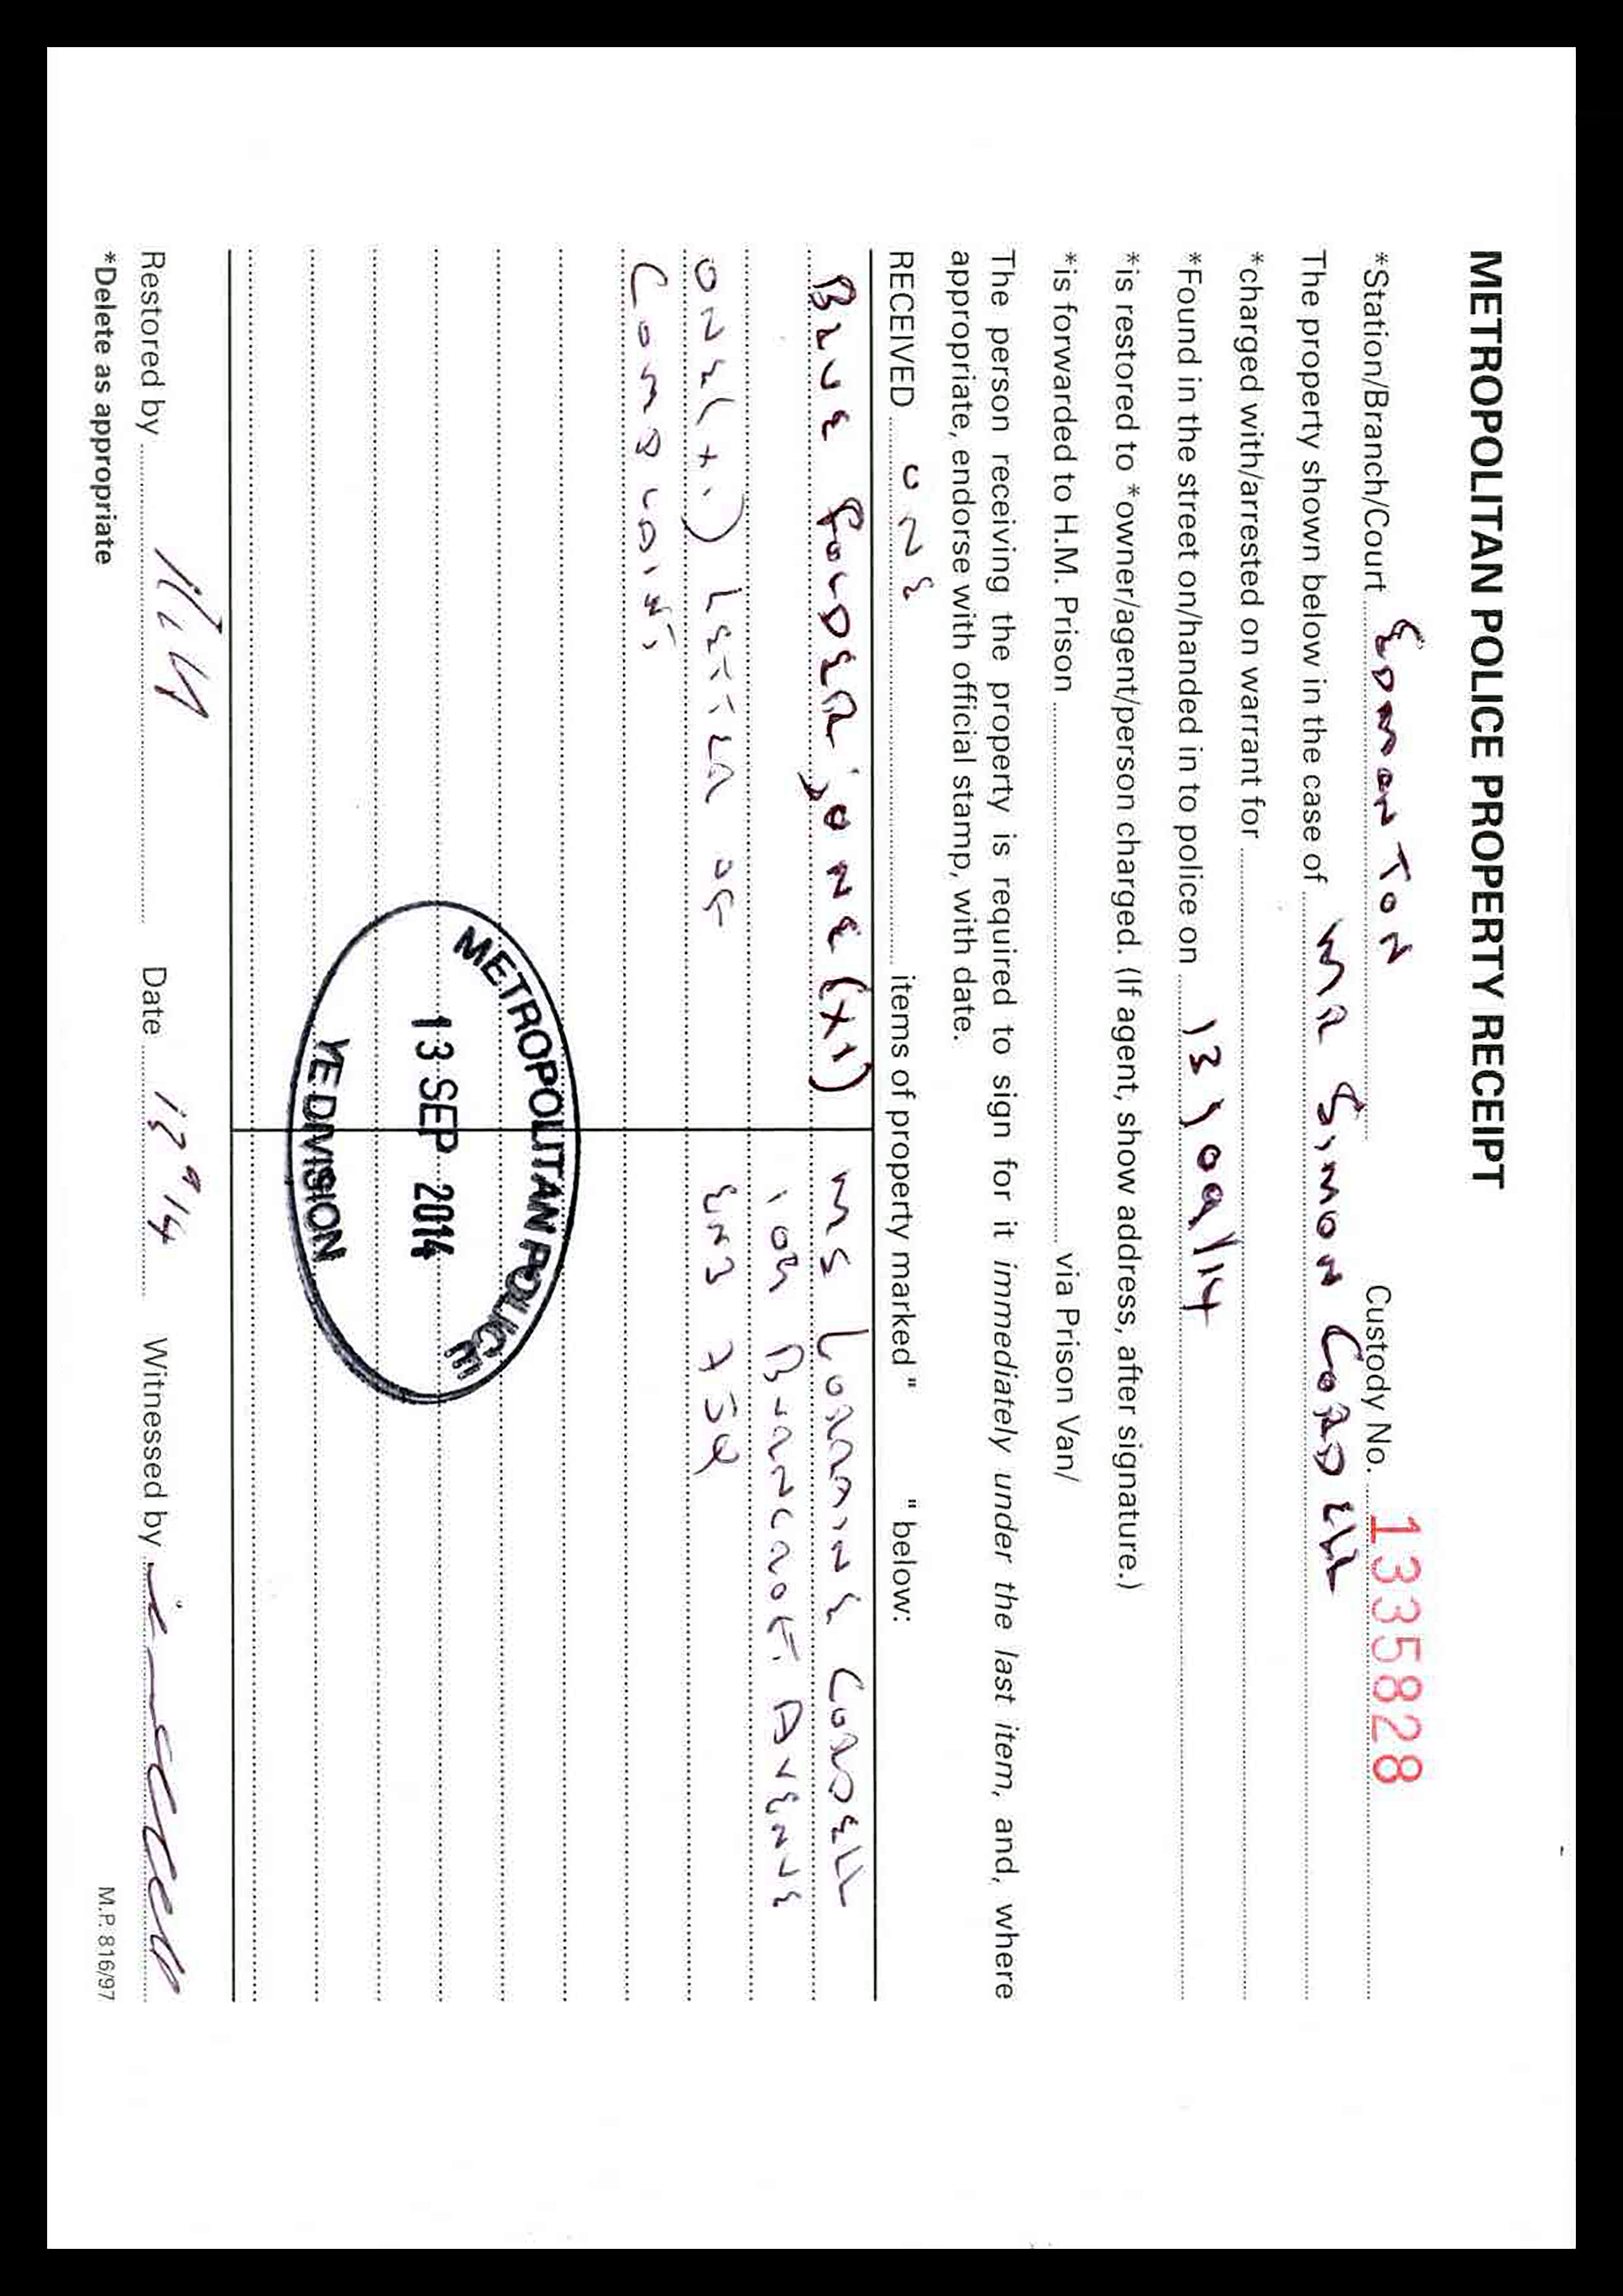 METROPOLITAN POLICE PROPERTY RECEIPT
1335828
*Station/Branch/Court EDMONTON Custody No.
The property shown below in the case of MR SIMON CORDELL
*charged with/arrested on warrant for
*Found in the street on/handed in to police on 13/09/14
*is restored to *owner/agent/person charged. (If agent, show address, after signature.)
*is forwarded to H.M. Prison via Prison Van/
The person receiving the property is required to sign for it immediately under the last item, and, where
appropriate, endorse with official stamp, with date.
RECEIVED ONE items of property marked " " below:
BLUE FOLDER, ONE (x1) MS LORRAINE CORDELL
109 BURNCROFT AVENUE
ONE (x1) LETTER OF EN3 7JQ
COMPLAINT
METROPOLITAN POLICE
13 SEP 2014
YE DIVISION
Restored by Date 13 9 14 Witnessed by
*Delete as appropriate
M.P. 816/97